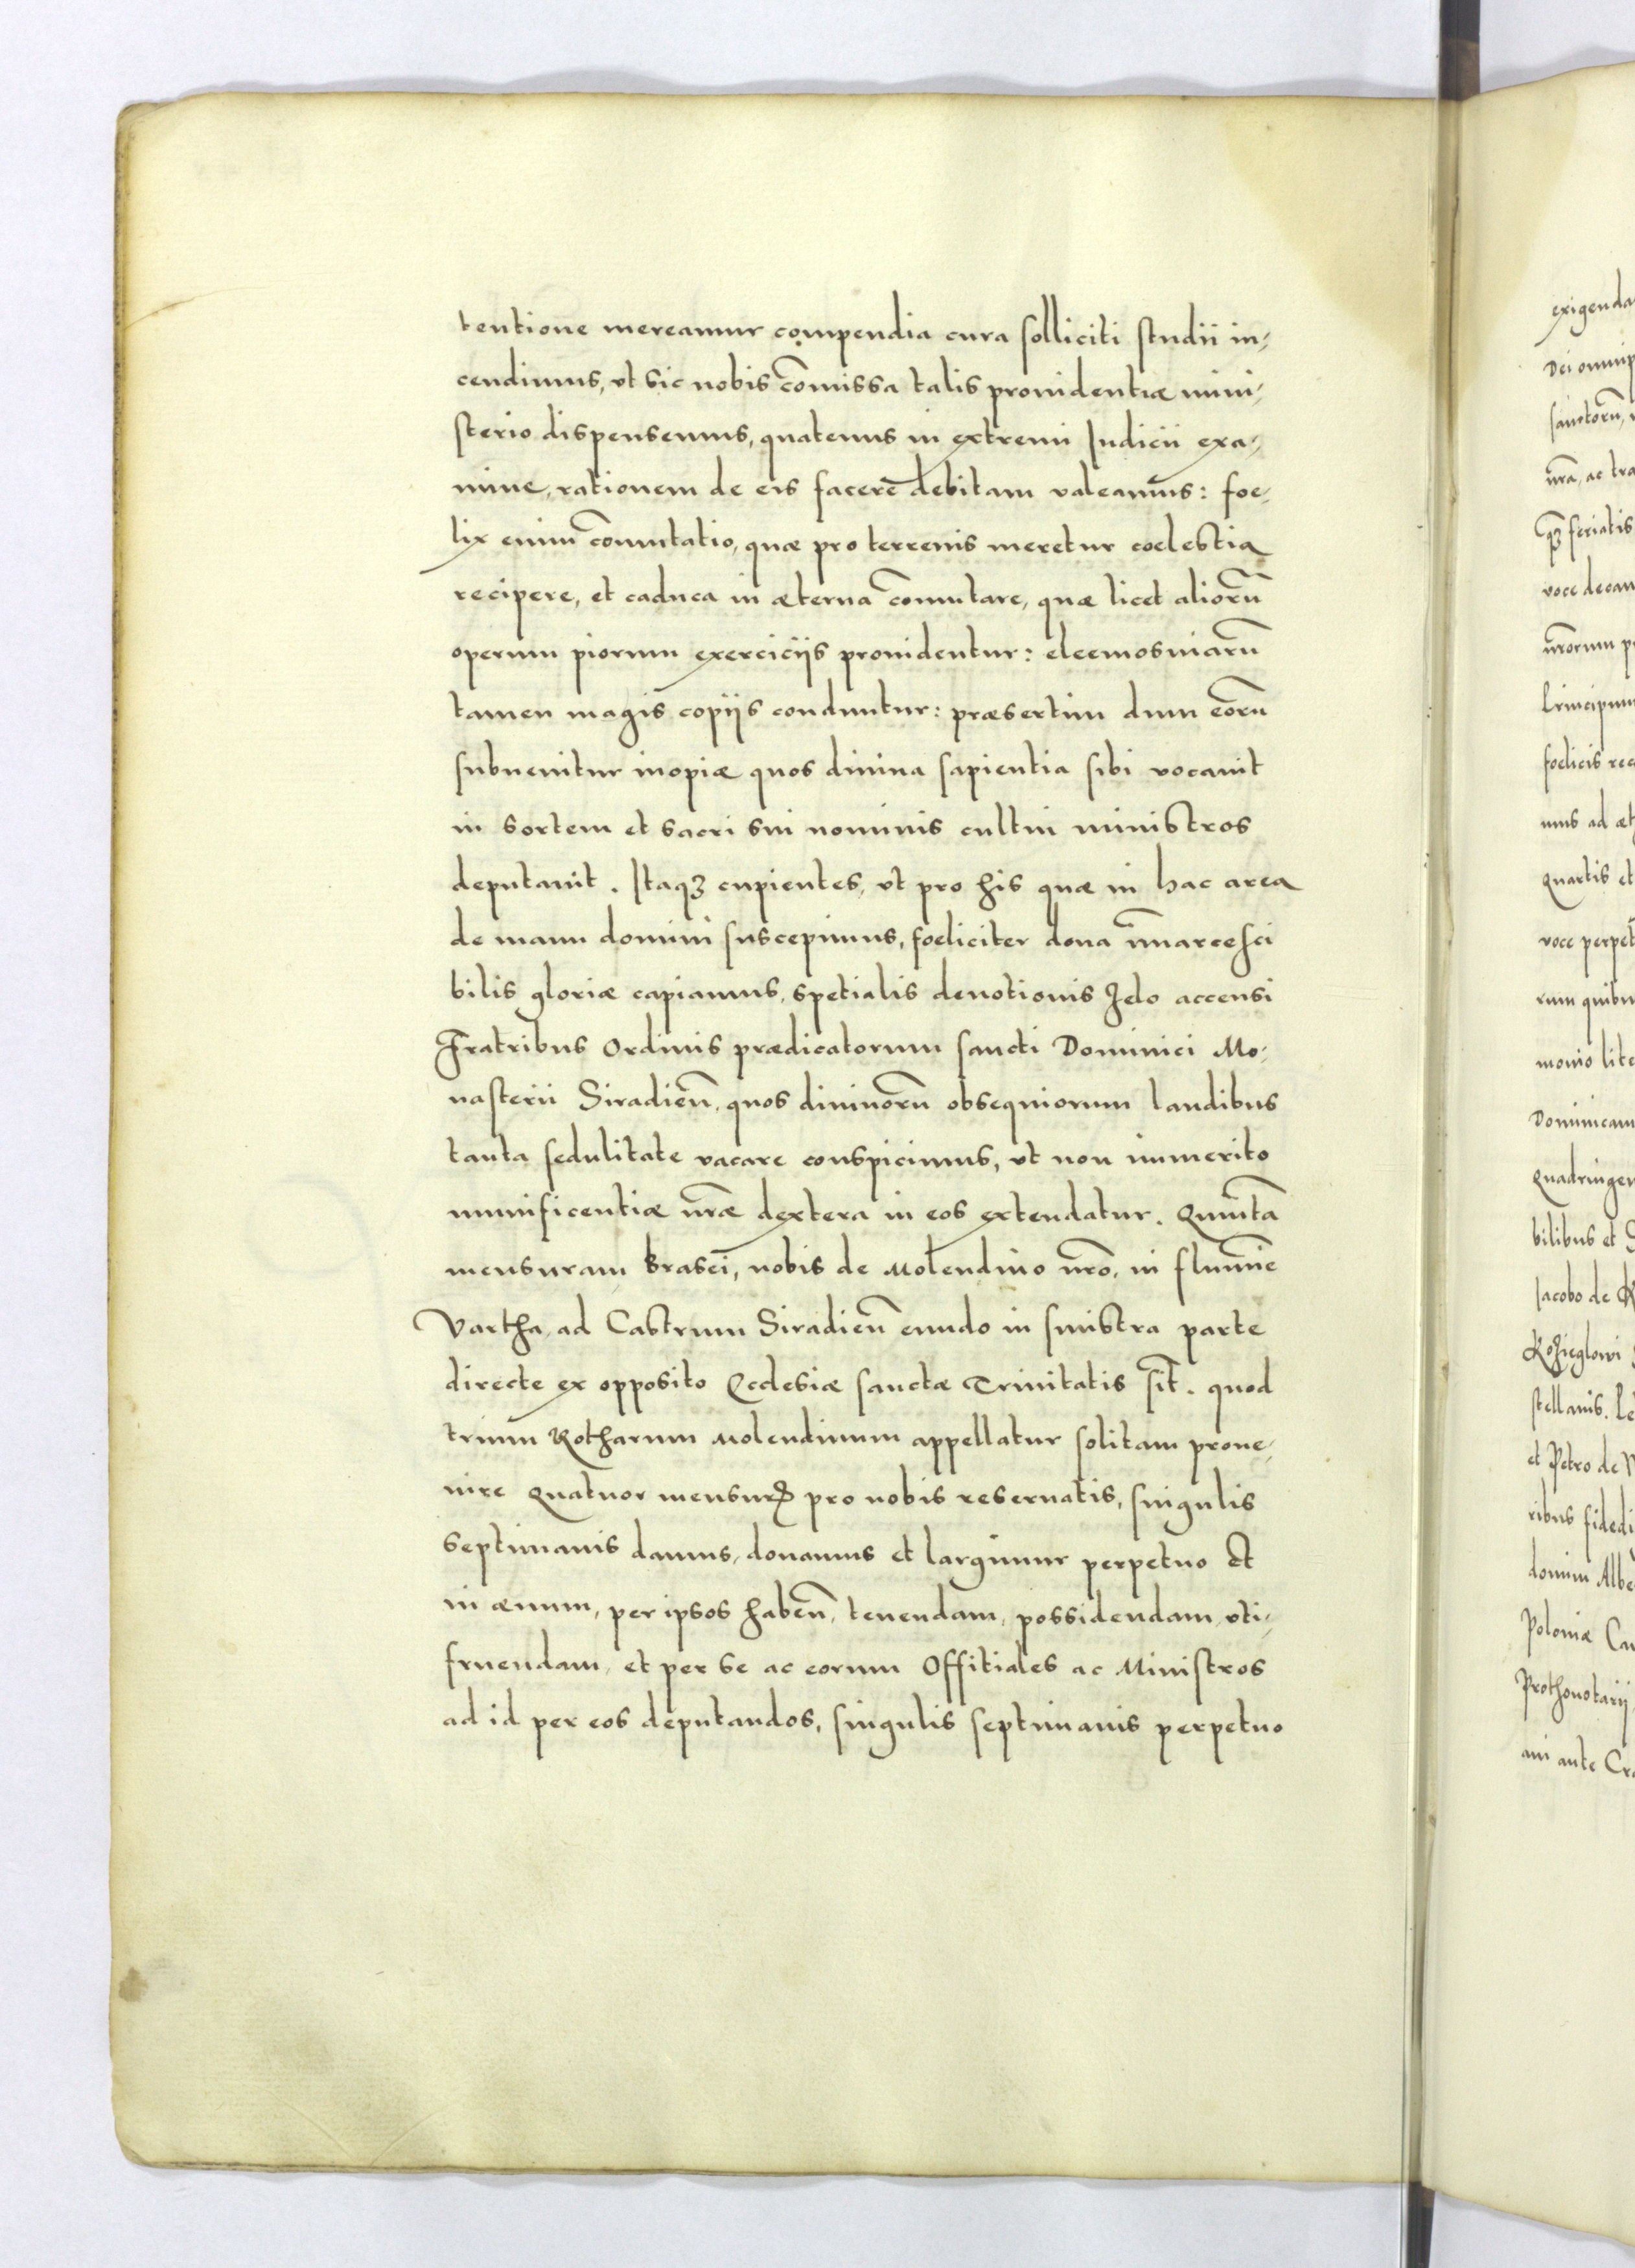 tentione mereamur compendia cura solliciti studii in-
cendimus, ut sic nobis com̄issa talis prouidentiæ mini-
sterio dispensemus, quatenus in extremi Iudicii exa-
mine, rationem de eis facere debitam valeamus: foe-
lix enim com̄utatio, quæ pro terrenis meretur coelestia
recipere, et caduca in æterna com̄utare, quæ licet aliorū
operum piorum exerciciis prouidentur: eleemosinarū
tamen magis copiis conduntur: præsertim dum eorū
subuenitur inopiæ quos diuina sapientia sibi vocauit
in sortem et sacri sui nominis cultui ministros
deputauit. Itaqȝ cupientes, ut pro his quæ in hac area
de manu domini suscepimus, foeliciter dona im̄arcesci
bilis gloriæ capiamus, spetialis deuotionis Zelo accensi
Fratribus Ordinis prædicatorum sancti Dominici Mo-
nasterii Siradien̄, quos diuinorū obsequiorum laudibus
tanta sedulitate vacare conspicimus, ut non immerito
munificentiæ nr̄æ dextera in eos extendatur. Quintā
mensuram brasei, nobis de Molendino nr̄o, in flumīe
Vartha, ad Castrum Siradien̄ eundo in sinistra parte
directe ex opposito Ecclesiæ sanctæ Trinitatis sit̄. quod
trium Rotharum Molendinum appellatur solitam proue-
nire Quatuor mensurꝭ pro nobis reseruatis, singulis
septimanis damus, donamus et largimur perpetuo Et
in æuum, per ipsos haben̄, tenendam, possidendam, uti-
fruendam, et per se ac eorum Offitiales ac Ministros
ad id per eos deputandos, singulis septimanis perpetuo
exigenda
Dei omnip
sanctorū,
nr̄a, ac tra
qȝ feriatis
voce decan
nr̄orum p
Principum
foelicis rec
mus ad æt
Quartis et
voce perpet
rum quibu
monio lite
Dominicam
Quadringen
bilibus et
Iacobo de
Kozieglowi
stellanis. Pe
et Petro de
ribus fidedi
domini Albe
Poloniæ Ca
Prothonotarii
ani ante Cra